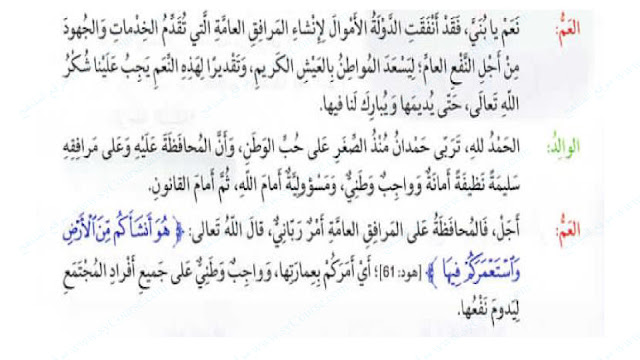 العَمُّ: نَعَمْ يا بُنَيَّ، فَقَدْ أَنْفَقَتِ الدَّوْلَةُ الأَمْوالَ لِإِنْشاءِ المَرافِقِ العامَّةِ الَّتي تُقَدِّمُ الخِدْماتِ والجُهودَ
مِنْ أَجْلِ النَّفْعِ العامِّ؛ لِيَسْعَدَ المُواطِنُ بِالعَيْشِ الكَريمِ، وَتَقْديرًا لِهَذِهِ النِّعَمِ يَجِبُ عَلَيْنا شُكْرُ
اللهِ تَعالَى، حَتّى يُديمَها وَيُبارِكَ لَنا فيها.
الوالِدُ: الحَمْدُ للهِ، تَرَبّى حَمْدانُ مُنْذُ الصِّغَرِ عَلى حُبِّ الوَطَنِ، وَأَنَّ المُحافَظَةَ عَلَيْهِ وَعَلى مَرافِقِهِ
سَليمَةً نَظيفَةً أَمانَةٌ وَواجِبٌ وَطَنِيٌّ، وَمَسْؤوليَّةٌ أَمامَ اللهِ، ثُمَّ أَمامَ القانونِ.
العَمُّ: أَجَلْ، فَالمُحافَظَةُ عَلى المَرافِقِ العامَّةِ أَمْرٌ رَبّانِيٌّ، قالَ اللهُ تَعالى: ﴿هُوَ أَنشَأَكُم مِّنَ ٱلْأَرْضِ
وَٱسْتَعْمَرَكُمْ فِيهَا﴾ [هود: 61]؛ أَيْ أَمَرَكُمْ بِعِمارَتِها، وَواجِبٌ وَطَنِيٌّ عَلى جَميعِ أَفْرادِ المُجْتَمَعِ
لِيَدومَ نَفْعُها.